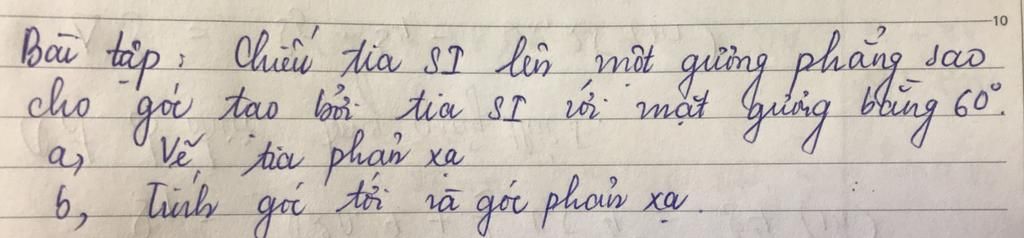 10
Bài tập: Chiếu tia SI lên một gương phẳng sao
cho góc tạo bởi tia SI với mặt gương bằng 60°.
a, Vẽ tia phản xạ
b, Tính góc tới và góc phản xạ.